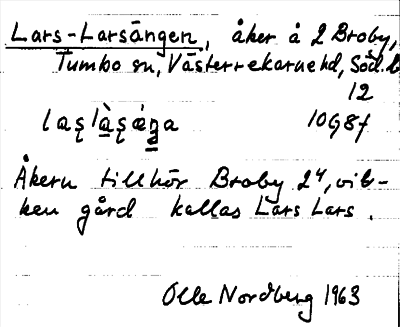 Lars-Larsängen, åker å 2 Broby,
Tumbo sn, Västerrekarne hd, Söd.l
12
10G8f
Åkern tillhör Broby 2⁴, vil-
ken gård kallas Lars Lars.
Olle Nordberg 1963